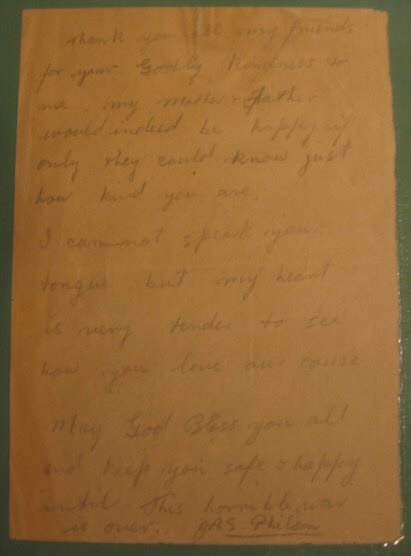 Thank you all my friends
for your Godly kindness to
me. my mother & Father
would indeed be happy if
only they could know just
how kind you are.
I can not speak your
tongue but my heart
is very tender to see
how you love our cause
May God Bless you all
and keep you safe & happy
until this horrible war
is over. Philson